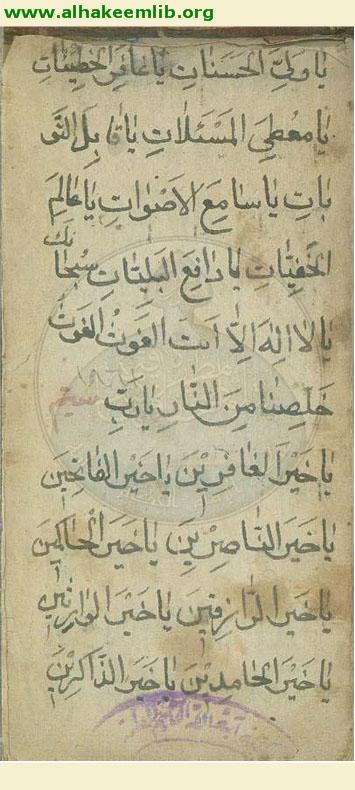 www.alhakeemlib.org
يا ولي الحسنات يا غافر الخطيئات
يا معطي المسئلات يا قابل التو
بات يا سامع الاصوات يا عالم
الخفيات يا دافع البليات سبحانك
يا لا اله الا انت الغوث الغوث
خلصنا من النار يا رب
يا خير الغافرين يا خير الفاتحين
يا خير الناصرين يا خير الحاكمين
يا خير الرازقين يا خير الوارثين
يا خير الحامدين يا خير الذاكرين